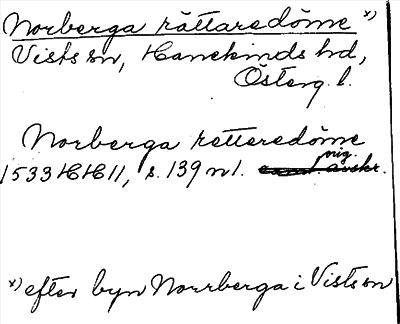 Norberga rättaredöme x)
Vists sn, Hanekinds hd,
Österg. l.
Norberga retteredöme
orig.
1533 HH 11, s. 139 n 1. avskr.
x) efter byn Norrberga i Vists sn